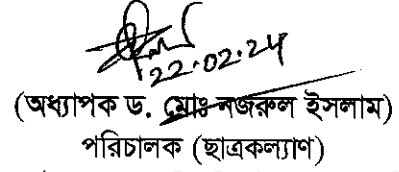 22.02.24
(অধ্যাপক ড. মোঃ নজরুল ইসলাম)
পরিচালক (ছাত্রকল্যাণ)